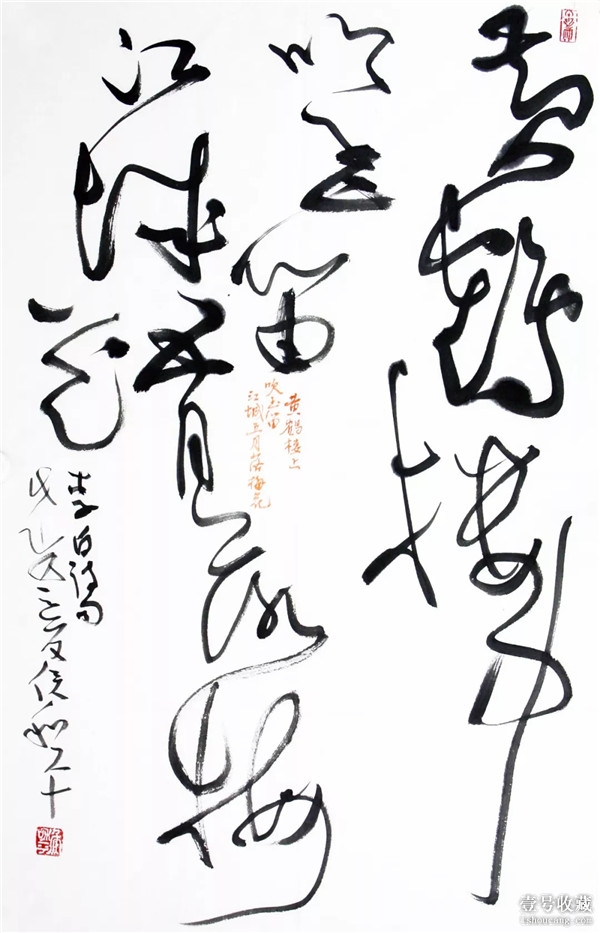 黄鹤楼中
吹玉笛
黄鹤楼上
吹玉笛
江城五月落梅花
江城五月落梅
花
李白诗句
戊戌
壹号收藏
1shoucang.com